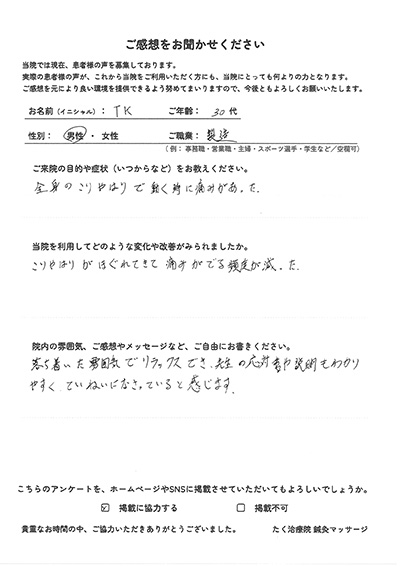 ご感想をお聞かせください
当院では現在、患者様の声を募集しております。
実際の患者様の声が、これから当院をご利用いただく方にも、当院にとっても何よりの力となります。
ご感想を元により良い環境を提供できるよう努めてまいりますので、今後ともよろしくお願いいたします。
お名前(イニシャル): TK ご年齢: 30 代
性別: 男性 ・ 女性 ご職業: 製造
(例: 事務職・営業職・主婦・スポーツ選手・学生など/空欄可)
ご来院の目的や症状(いつからなど)をお教えください。
全身のこりやはりで動く時に痛みがあった。
当院を利用してどのような変化や改善がみられましたか。
こりやはりがほぐれてきて痛みがでる頻度が減った。
院内の雰囲気、ご感想やメッセージなど、ご自由にお書きください。
落ち着いた雰囲気でリラックスでき、先生の応対や説明もわかり
やすく、ていねいになさっていると感じます。
こちらのアンケートを、ホームページやSNSに掲載させていただいてもよろしいでしょうか。
☑ 掲載に協力する □ 掲載不可
貴重なお時間の中、ご協力いただきありがとうございました。 たく治療院 鍼灸マッサージ